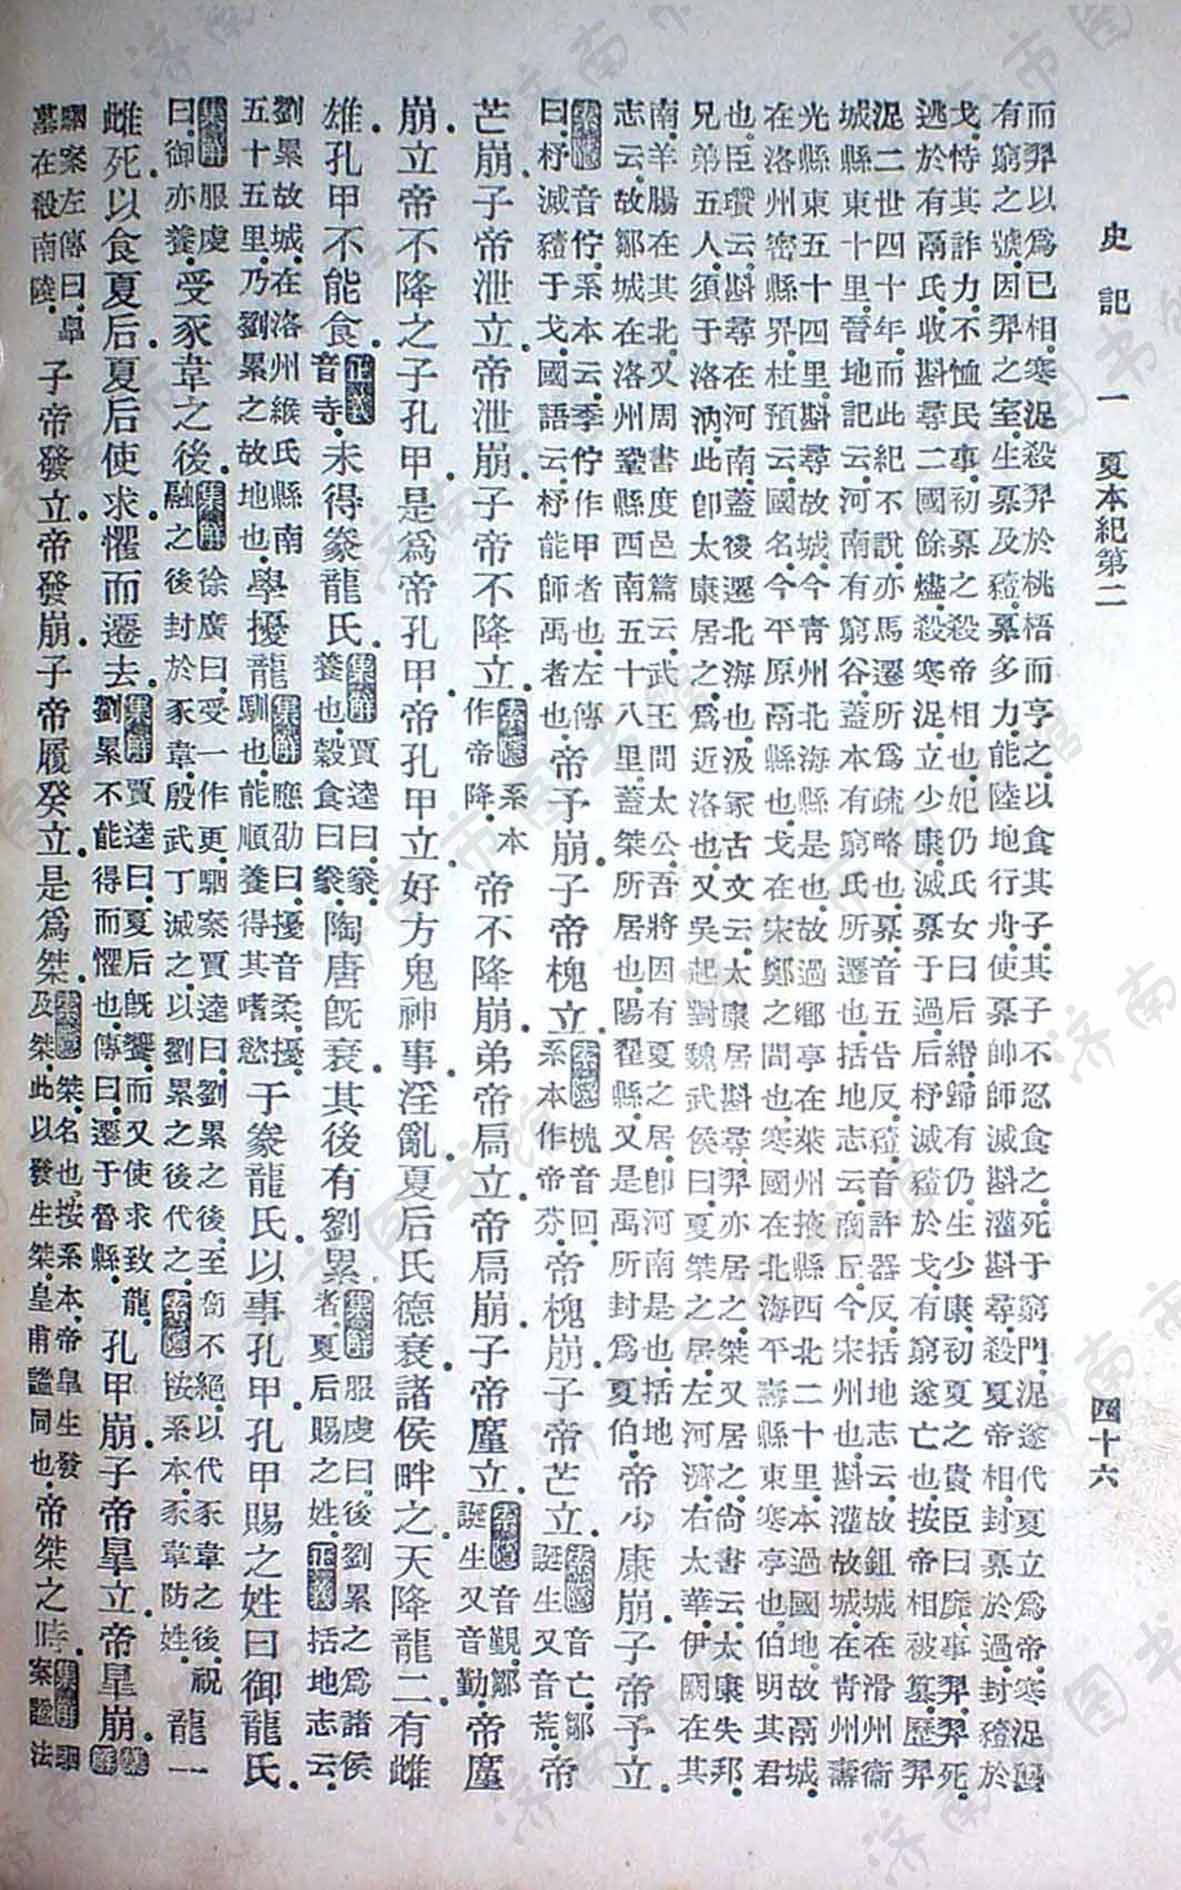 史記一 夏本紀第二 四十六
而羿以爲己相。寒浞殺羿於桃梧而亨之。以食其子。其子不忍食之。死于窮門。浞遂代夏立爲帝。寒浞襲
有窮之號。因羿之室。生奡及豷。奡多力。能陸地行舟。使奡帥師滅斟灌斟尋。殺夏帝相。封奡於過。封豷於
戈。恃其詐力。不恤民事。初奡之殺帝相也。妃仍氏女曰后緡。歸有仍。生少康。初夏之貴臣曰靡。事羿。羿死。
逃於有鬲氏。收斟尋二國餘燼。殺寒浞。立少康。滅奡于過。后杼滅豷於戈。有窮遂亡也。按帝相被篡。歷羿
浞二世四十年。而此紀不說。亦馬遷所爲疏略也。奡音五告反。豷音許器反。括地志云。故鉏城在滑州衞
城縣東十里。晉地記云。河南有窮谷。蓋本有窮氏所遷也。括地志云。商丘今宋州也。斟灌故城在青州壽
光縣東五十四里。斟尋故城今青州北海縣是也。故過鄉亭在萊州掖縣西北二十里。本過國地。故鬲城
在洛州密縣界。杜預云。國名。今平原鬲縣也。戈在宋鄭之間也。寒國在北海平壽縣東寒亭也。伯明其君
也。臣瓚云。斟尋在河南。蓋後遷北海也。汲冢古文云。太康居斟尋。羿亦居之。桀又居之。尚書云。太康失邦。
兄弟五人須于洛汭。此卽太康居之。爲近洛也。又吳起對魏武侯曰。夏桀之居。左河濟。右太華。伊闕在其
南。羊腸在其北。又周書度邑篇云。武王問太公。吾將因有夏之居。卽河南是也。括地
志云。故鄒城在洛州鞏縣西南五十八里。蓋桀所居也。陽翟縣又是禹所封。爲夏伯。帝少康崩。子帝予立。
索隱音佇。系本云。季佇作甲者也。左傳曰。杼滅豷于戈。國語云。杼能師禹者也。帝予崩。子帝槐立。索隱槐音回。系本作帝芬。帝槐崩。子帝芒立。索隱音亡。鄒誕生又音荒。帝
芒崩。子帝泄立。帝泄崩。子帝不降立。索隱系本作帝降。帝不降崩。弟帝扃立。帝扃崩。子帝廑立。索隱音覲。鄒誕生又音勤。帝廑
崩。立帝不降之子孔甲。是爲帝孔甲。帝孔甲立。好方鬼神事。淫亂。夏后氏德衰。諸侯畔之。天降龍二。有雌
雄。孔甲不能食。正義音寺。未得豢龍氏。集解賈逵曰。豢。養也。穀食曰豢。陶唐既衰。其後有劉累。集解服虔曰。後劉累之爲諸侯者。夏后賜之姓。正義括地志云。
劉累故城。在洛州緱氏縣南五十五里。乃劉累之故地也。學擾龍集解應劭曰。擾音柔。擾。馴也。能順養得其嗜慾于豢龍氏。以事孔甲。孔甲賜之姓曰御龍氏。
集解服虔曰。御亦養。受豕韋之後。集解徐廣曰。受一作更。駰案賈逵曰。劉累之後。至商不絕。以代豕韋之後。祝融之後封於豕韋。殷武丁滅之。以劉累之後代之。索隱按系本。豕韋防姓。龍一
雌死。以食夏后。夏后使求。懼而遷去。集解賈逵曰。夏后既饗。而又使求致龍。劉累不能得而懼也。傳曰。遷于魯縣。孔甲崩。子帝皐立。帝皐崩。集解
駰案左傳曰。皐墓在殽南陵。子帝發立。帝發崩。子帝履癸立。是爲桀。索隱桀。名也。按系本。帝皐生發及桀。此以發生桀。皇甫謐同也。帝桀之時。集解駰案謚法